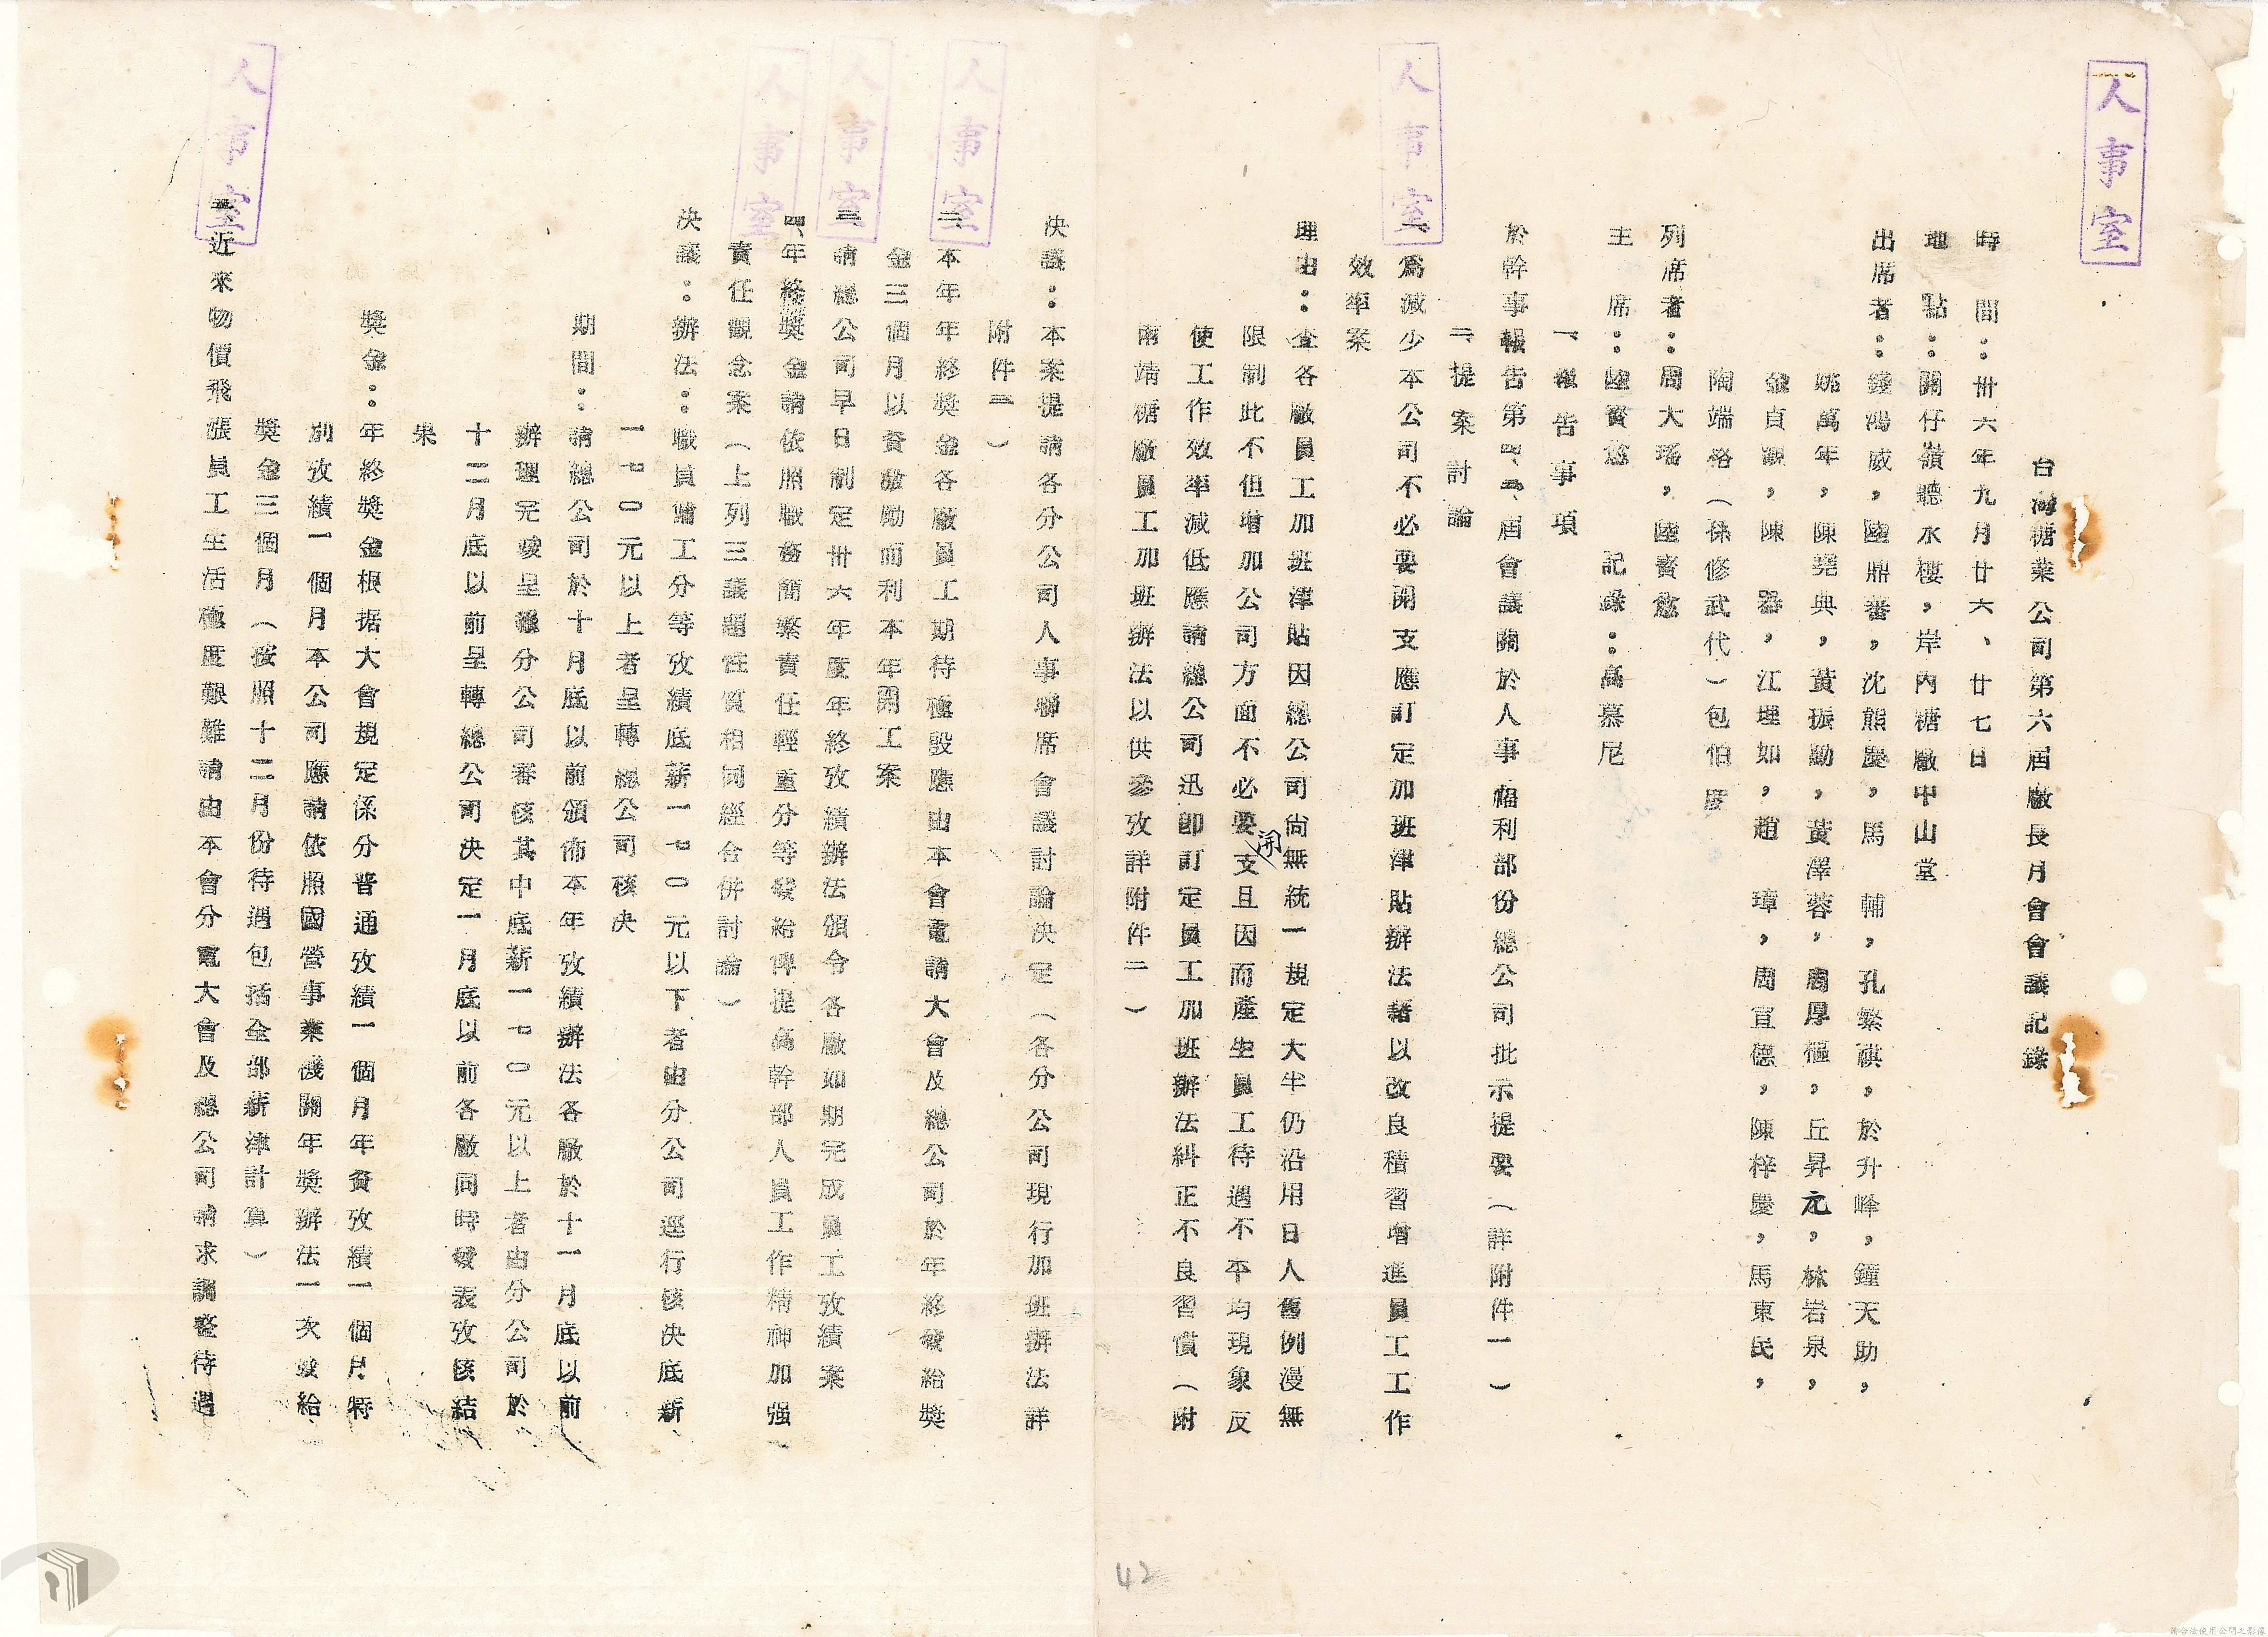 人事室
台灣糖業公司第六屆廠長月會會議記錄
時　間：卅六年九月廿六、廿七日
地　點：關仔嶺聽水樓，岸內糖廠甲山堂
出席者：錢鴻威，陸鼎蕃，沈熊慶，馬　輔，孔繁祺，於升峰，鍾天助，
姚萬年，陳堯典，黃振勳，黃澤蓉，周厚樞，丘昇元，林岩泉，
金貞觀，陳　器，江理如，趙　璋，周宣德，陳梓慶，馬東民，
陶端格（孫修武代）包怕度
列席者：周大瑤，陸寶愈
主　席：陸寶愈　　記錄：高慕尼
一、報告事項
於幹事報告第四、五屆會議關於人事福利部份總公司批示提要（詳附件一）
二、提案討論
人事室
一、為減少本公司不必要開支應訂定加班津貼辦法藉以改良積習增進員工工作
效率案
理由：查各廠員工加班津貼因總公司尚無統一規定大半仍沿用日人舊例漫無
限制此不但增加公司方面不必要開支且因而產生員工待遇不平均現象反
使工作效率減低應請總公司迅卽訂定員工加班辦法糾正不良習慣（附
南靖糖廠員工加班辦法以供參攷詳附件二）
決議：本案提請各分公司人事聯席會議討論決定（各分公司現行加班辦法詳
附件三）
人事室
二、本年年終獎金各廠員工期待極殷應由本會電請大會及總公司於年終發給獎
金三個月以資激勵而利本年開工案
人事室
三、請總公司早日制定卅六年度年終攷績辦法頒令各廠如期完成員工攷績案
人事室
四、年終獎金請依照職務簡繁責任輕重分等發給俾提高幹部人員工作精神加强
責任觀念案（上列三議題性質相同經合併討論）
決議：辦法：職員傭工分等攷績底薪一七〇元以下者由分公司逕行核決底薪
一七〇元以上者呈轉總公司核決
期間：請總公司於十月底以前頒佈本年攷績辦法各廠於十一月底以前
辦理完竣呈報分公司審核其中底薪一七〇元以上者由分公司於
十二月底以前呈轉總公司決定一月底以前各廠同時發表攷核結
果
獎金：年終獎金根据大會規定係分普通攷績一個月年資攷績一個月特
別攷績一個月本公司應請依照國營事業機關年獎辦法一次發給
獎金三個月（按照十二月份待遇包括全部薪津計算）
人事室
五、近來物價飛漲員工生活極度艱難請由本會分電大會及總公司請求調整待遇
42
請合法使用公開之影像